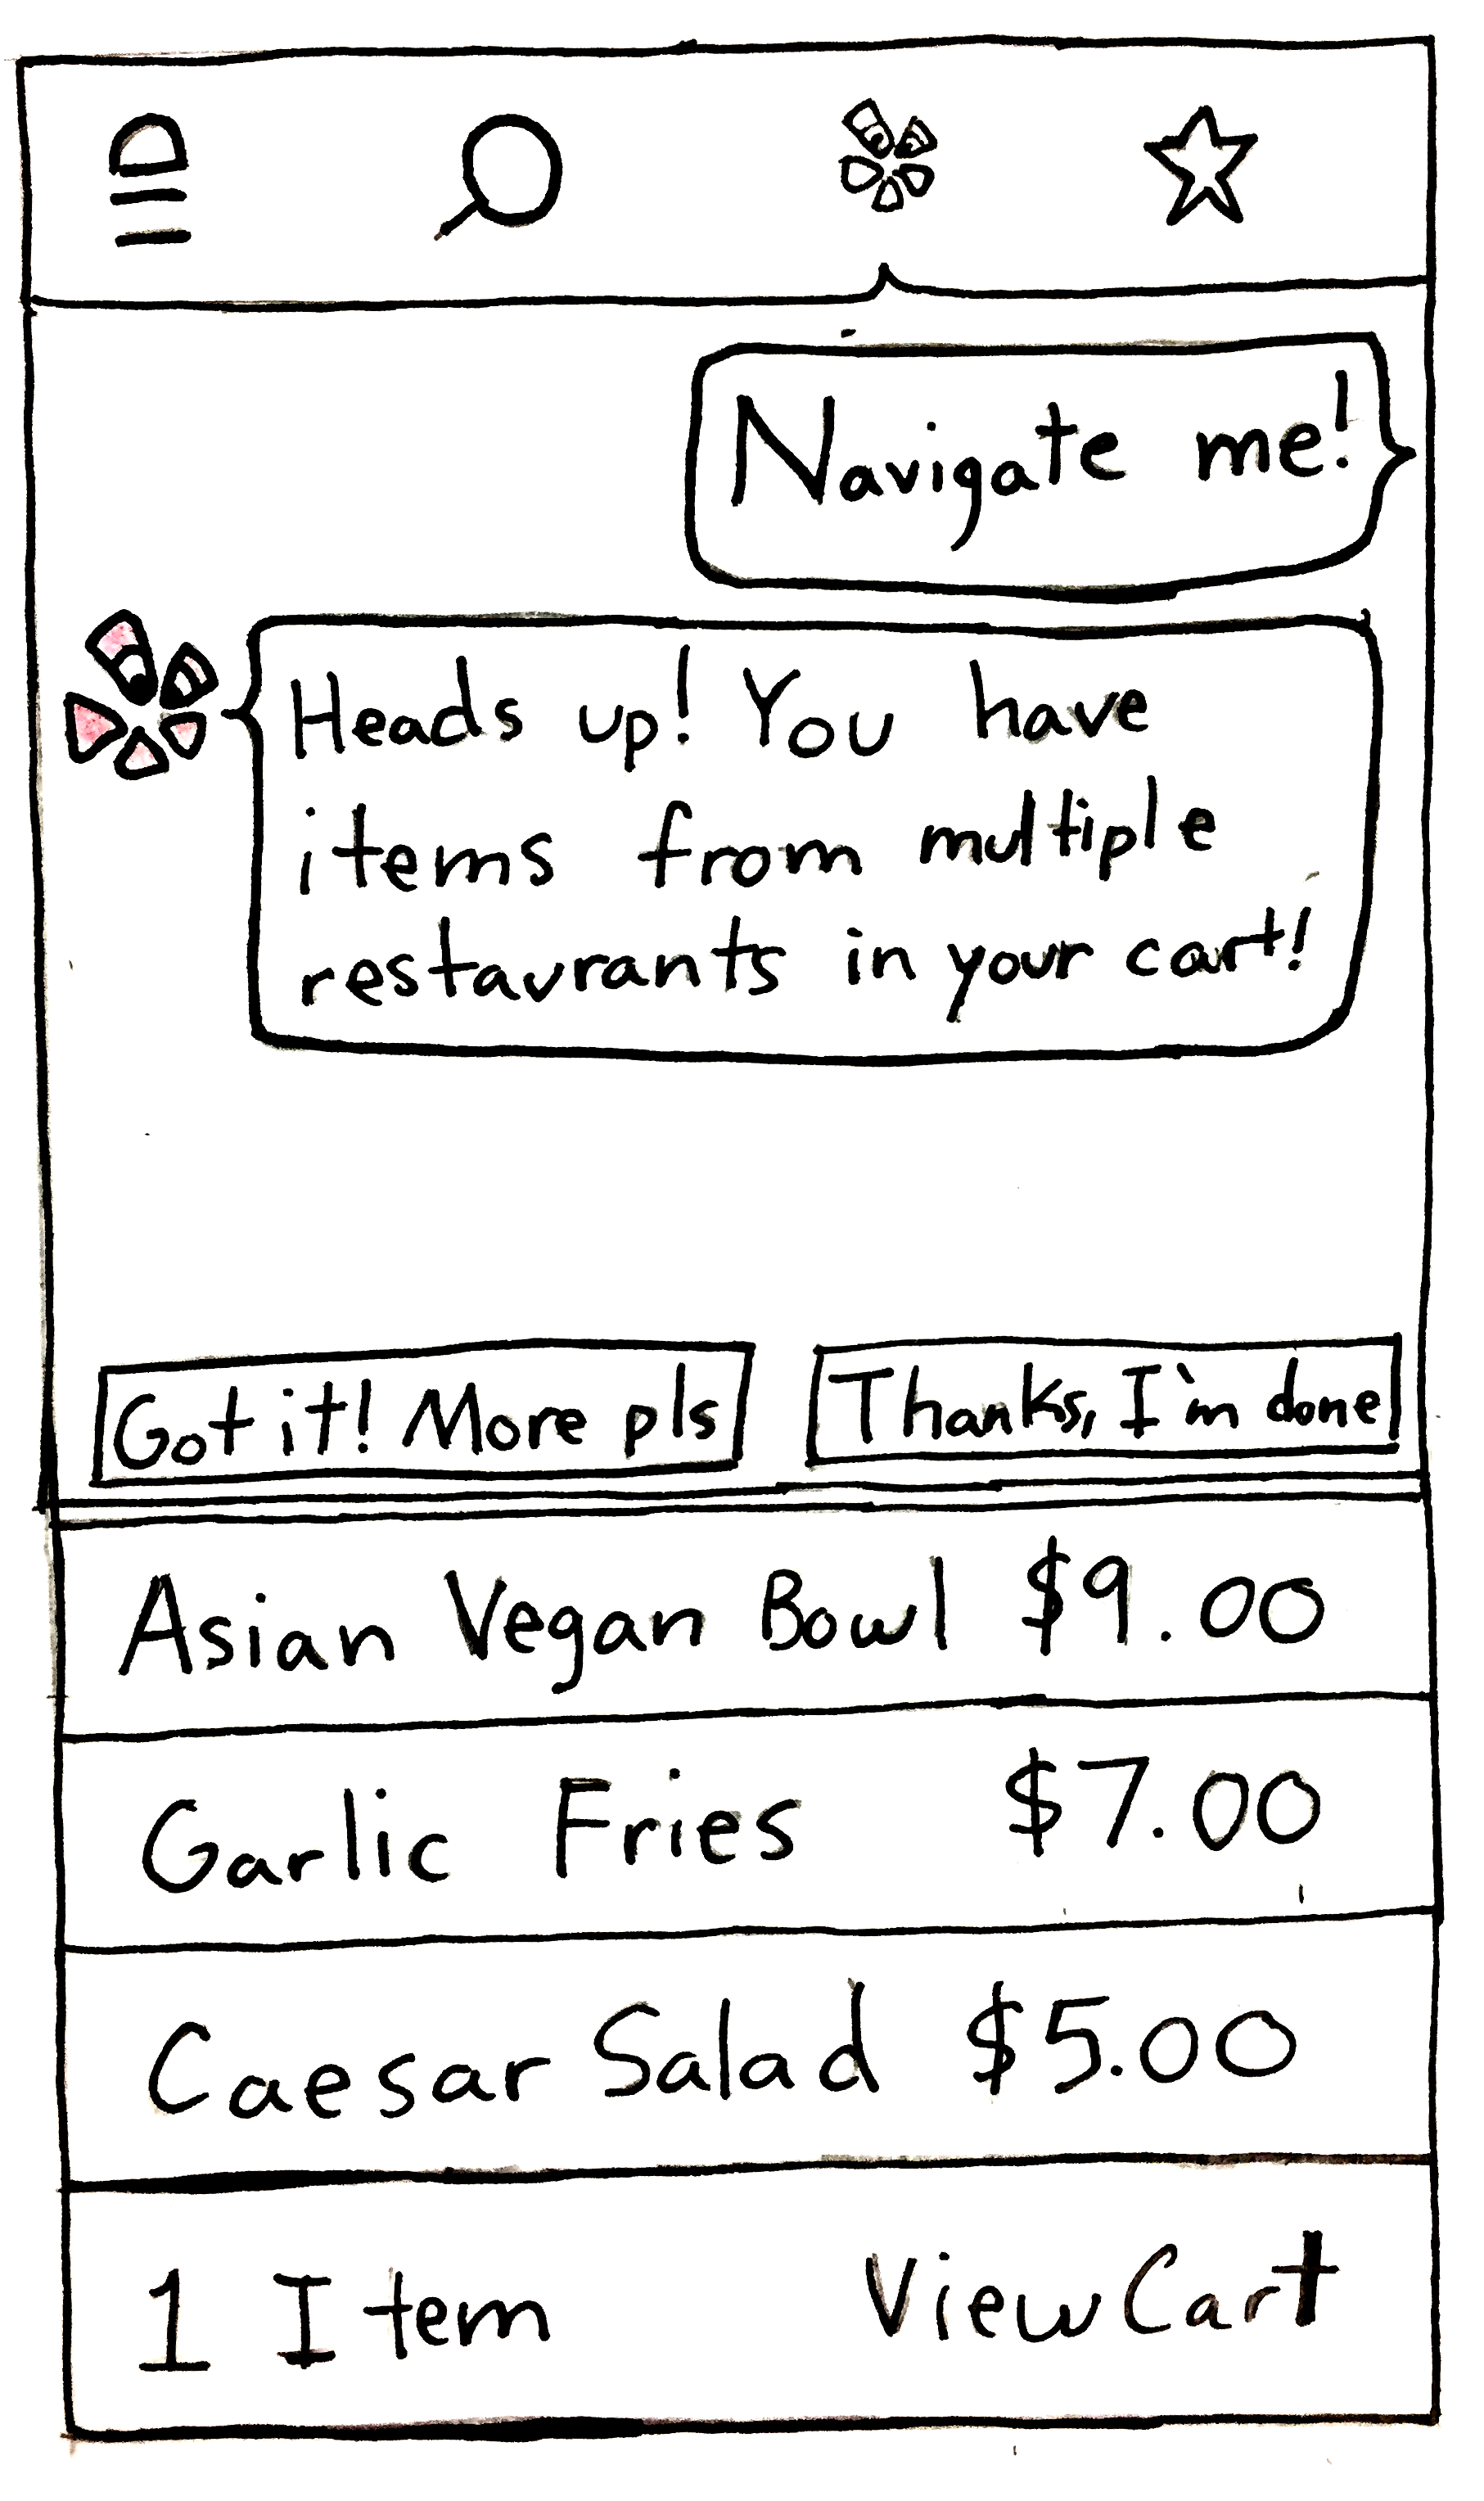 Navigate me!
Heads up! You have
items from multiple
restaurants in your cart!
Got it! More pls
Thanks, I'm done
Asian Vegan Bowl $9.00
Garlic Fries $7.00
Caesar Salad $5.00
1 Item View Cart